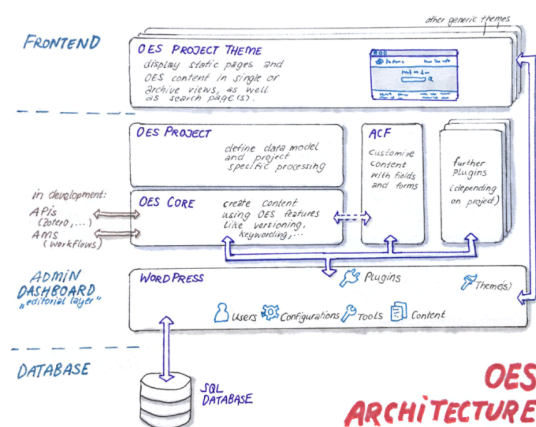 other generic themes
FRONTEND
OES PROJECT THEME
display static pages and
OES content in single or
archive views, as well
as search page(s).
OES PROJECT
define data model
and project
specific processing
ACF
customize
content
with fields
and forms
further
Plugins
(depending
on
project)
in development:
APIs
(Zotero,...)
AMS
(Workflows)
OES CORE
create content
using OES features
like versioning,
keywording,...
ADMIN
DASHBOARD
"editorial layer"
WORDPRESS
Plugins
Theme(s)
Users
Configurations
Tools
Content
DATABASE
SQL
DATABASE
OES
ARCHITECTURE